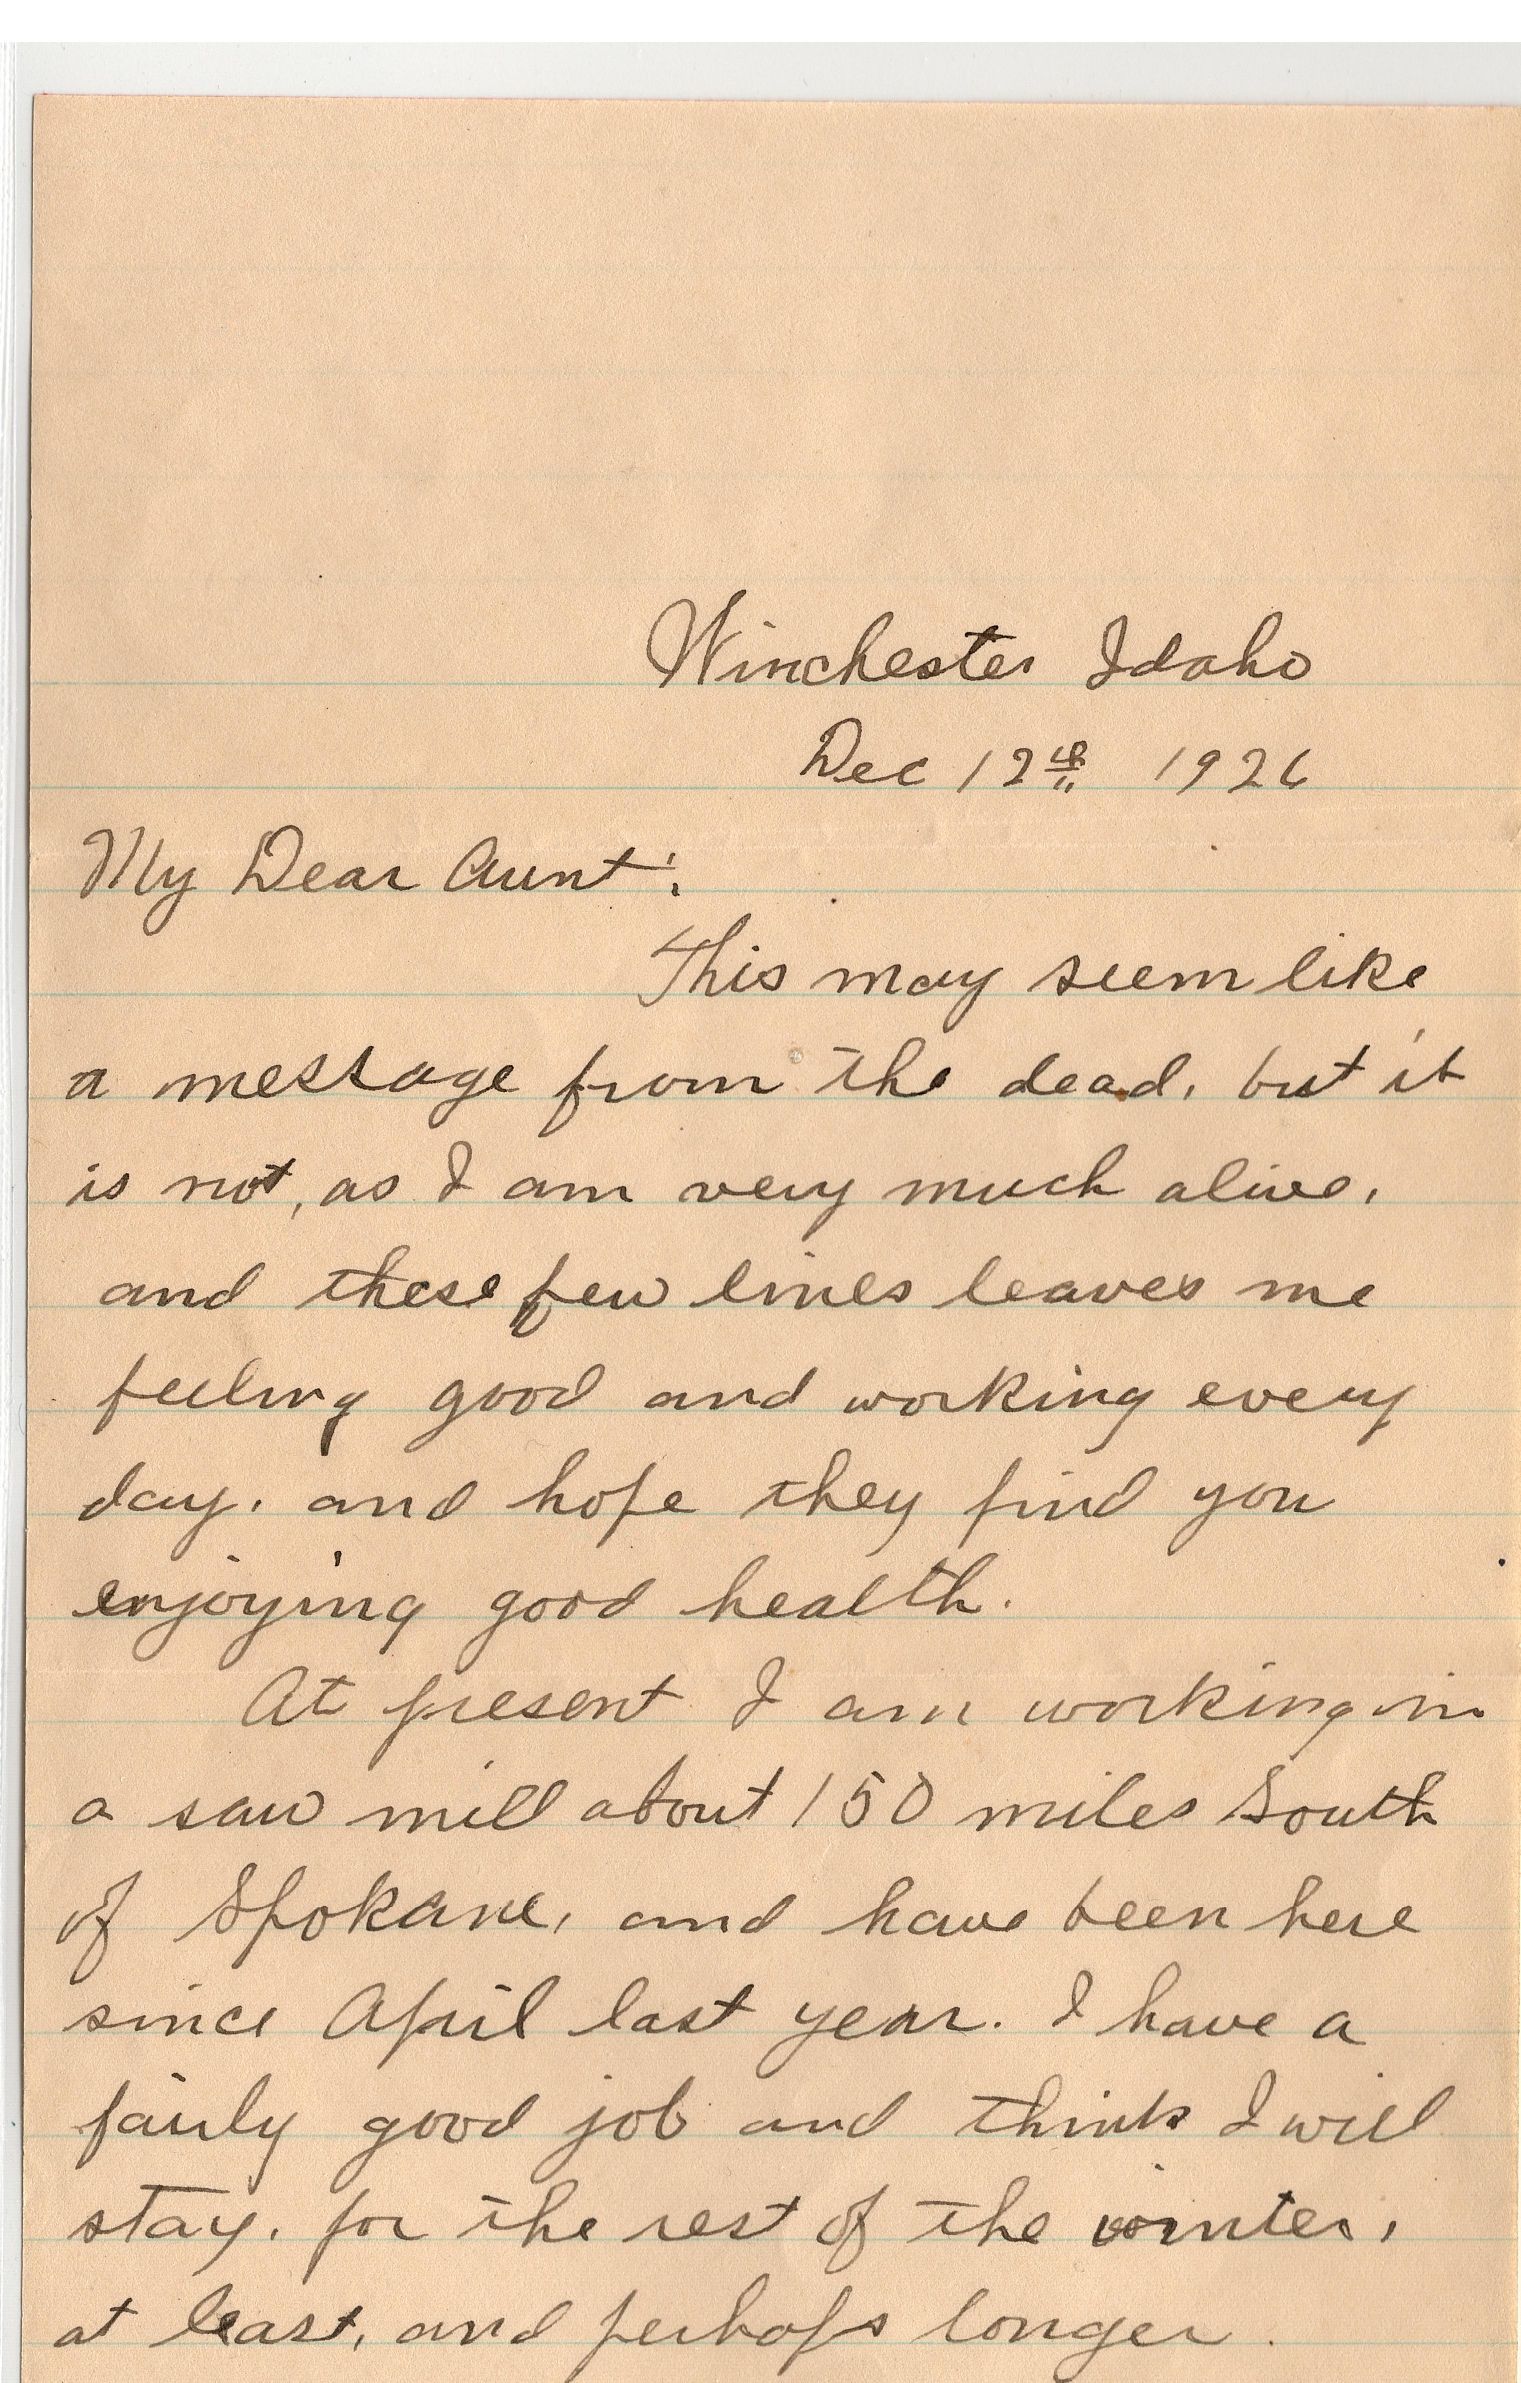 Winchester Idaho
Dec 12th 1926
My Dear Aunt:
This may seem like
a message from the dead, but it
is not, as I am very much alive,
and these few lines leaves me
feeling good and working every
day. and hope they find you
enjoying good health.
At present I am working in
a saw mill about 150 miles South
of Spokane, and have been here
since April last year. I have a
fairly good job and think I will
stay. for the rest of the winter,
at least, and perhaps longer.